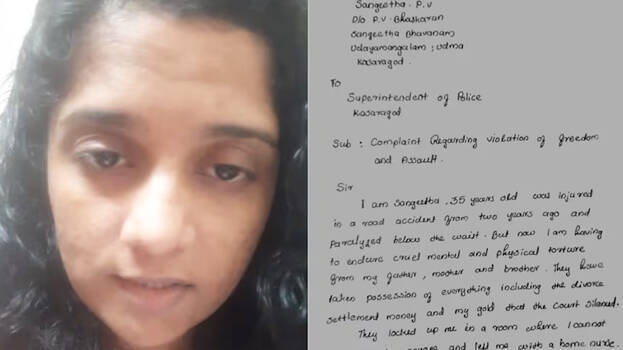 Sangeetha. P.V
D/o P.V. Bhaskaran
Sangeetha Bhavanam
Udayamangalam ; Udma
Kasaragod.
To
Superintendent of Police
Kasaragod
Sub : Complaint Regarding violation of freedom
and Assault.
Sir,
I am Sangeetha, 35 years old was injured
in a road accident from two years ago and
Paralyzed below the waist. But now I am having
to endure cruel mental and physical torture
from my father, mother and brother. They have
taken possession of everything including the divorce
settlement money and my gold that the court
They locked up me in a room where I cannot
and left me with a home nurse.